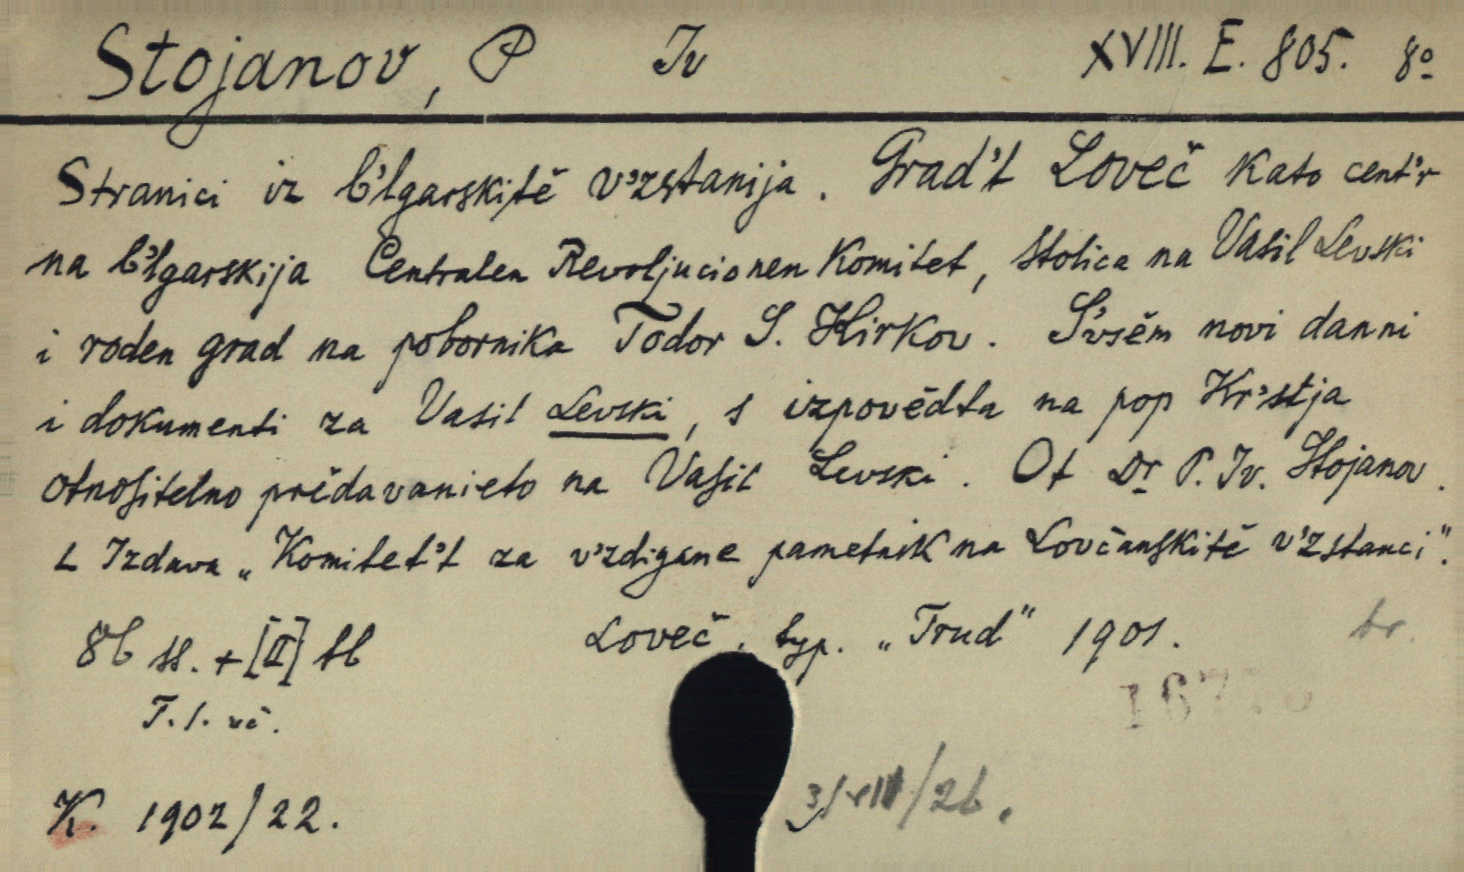 Stojanov, P Iv XVIII. E. 805. 8º
Stranici iz b'lgarskitě v'zstanija. Grad't Loveč kato cent'r
na b'lgarskija Centralen Revoljucionen Komitet, stolica na Vasil Levski
i roden grad na pobornika Todor S. Hirkov. S'vsěm novi danni
i dokumenti za Vasil Levski, s izpovědta na pop Kr'stja
otnositelno prědavanieto na Vasil Levski. Ot Dr P. Iv. Stojanov.
Izdava „Komitet't za v'zdigane pametnik na Lovčanskitě v'zstanci".
86 ss. + [II] bl
Loveč, typ. „Trud" 1901. br.
T. l. vč.
K. 1902/22.
3/VIII/26.